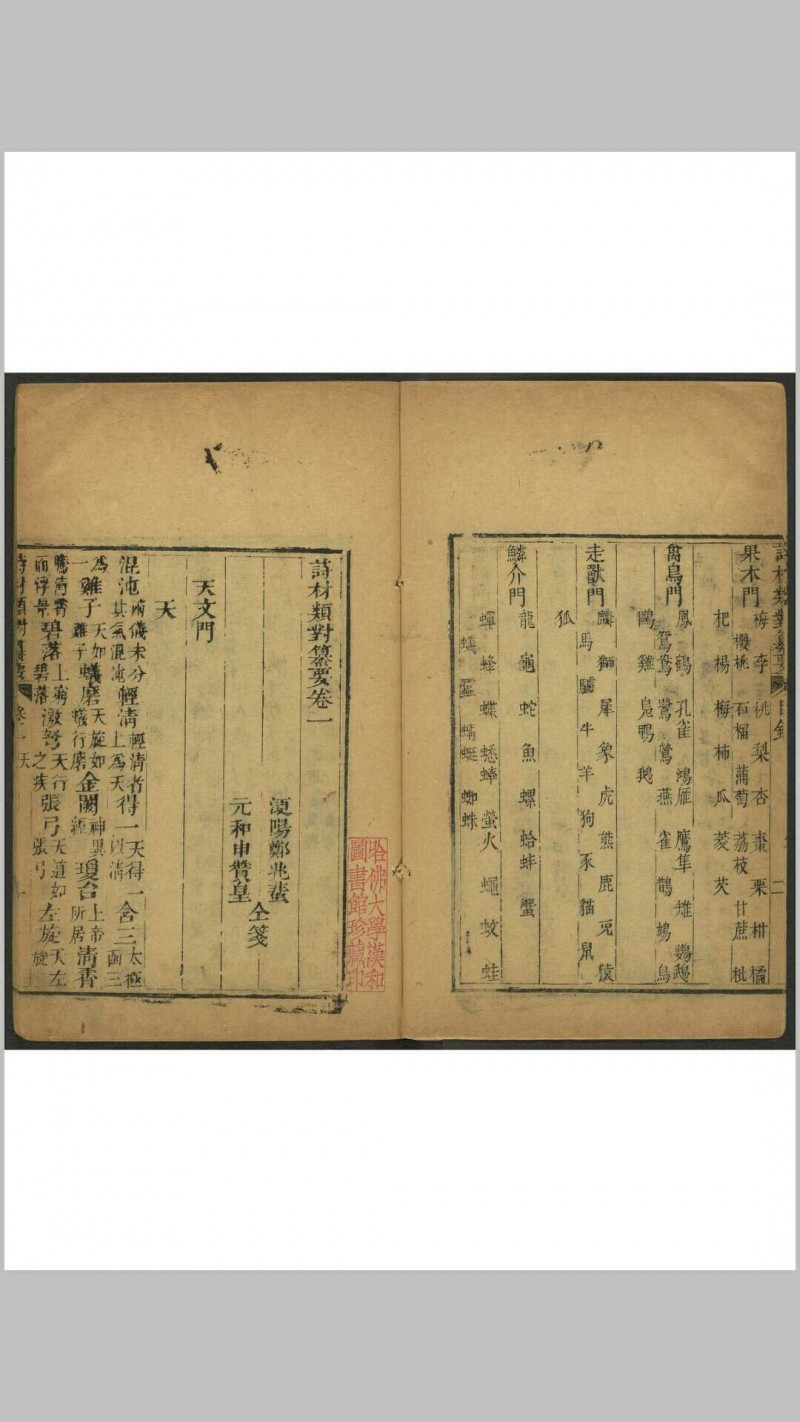 詩材類對纂要 目錄 二
果木門
梅 李 桃 梨 杏 棗 栗 柑 橘
櫻桃 石榴 蒲萄 荔枝 甘蔗 枇
杷 楊梅 柿 瓜 菱 芡
禽鳥門
鳳 鶴 孔雀 鴻雁 鷹隼 雉 鸚鵡
鴛鴦 鷺 鶯 燕 雀 鵲 鳩 烏
鷗 雞 鳧鴨 鵝
走獸門
麟 獅 犀 象 虎 熊 鹿 兎 猿
馬 驢 牛 羊 狗 豕 貓 鼠
狐
鱗介門
龍 龜 蛇 魚 螺 蛤蚌 蟹
蟬 蜂 蝶 蟋蟀 螢火 蠅 蚊 蛙
蟻 蜻蜓 蜘蛛
詩材類對纂要卷一
浭陽鄭兆蜚
元和申贊皇
仝箋
天文門
天
混沌 兩儀未分其氣混沌 輕清 輕清者上爲天 得一 天得一以清 含三 太極函三
爲一 雞子 天如雞子 蟻磨 天旋如蟻行磨 金闕 神異經 瓊台 上帝所居 清霄
騰清霄而浮景 碧落 上窮碧落 激弩 天行之疾 張弓 天道如張弓 左旋 天左旋
詩材類對纂要 卷一 天 一
哈佛大學漢和
圖書館珍藏印